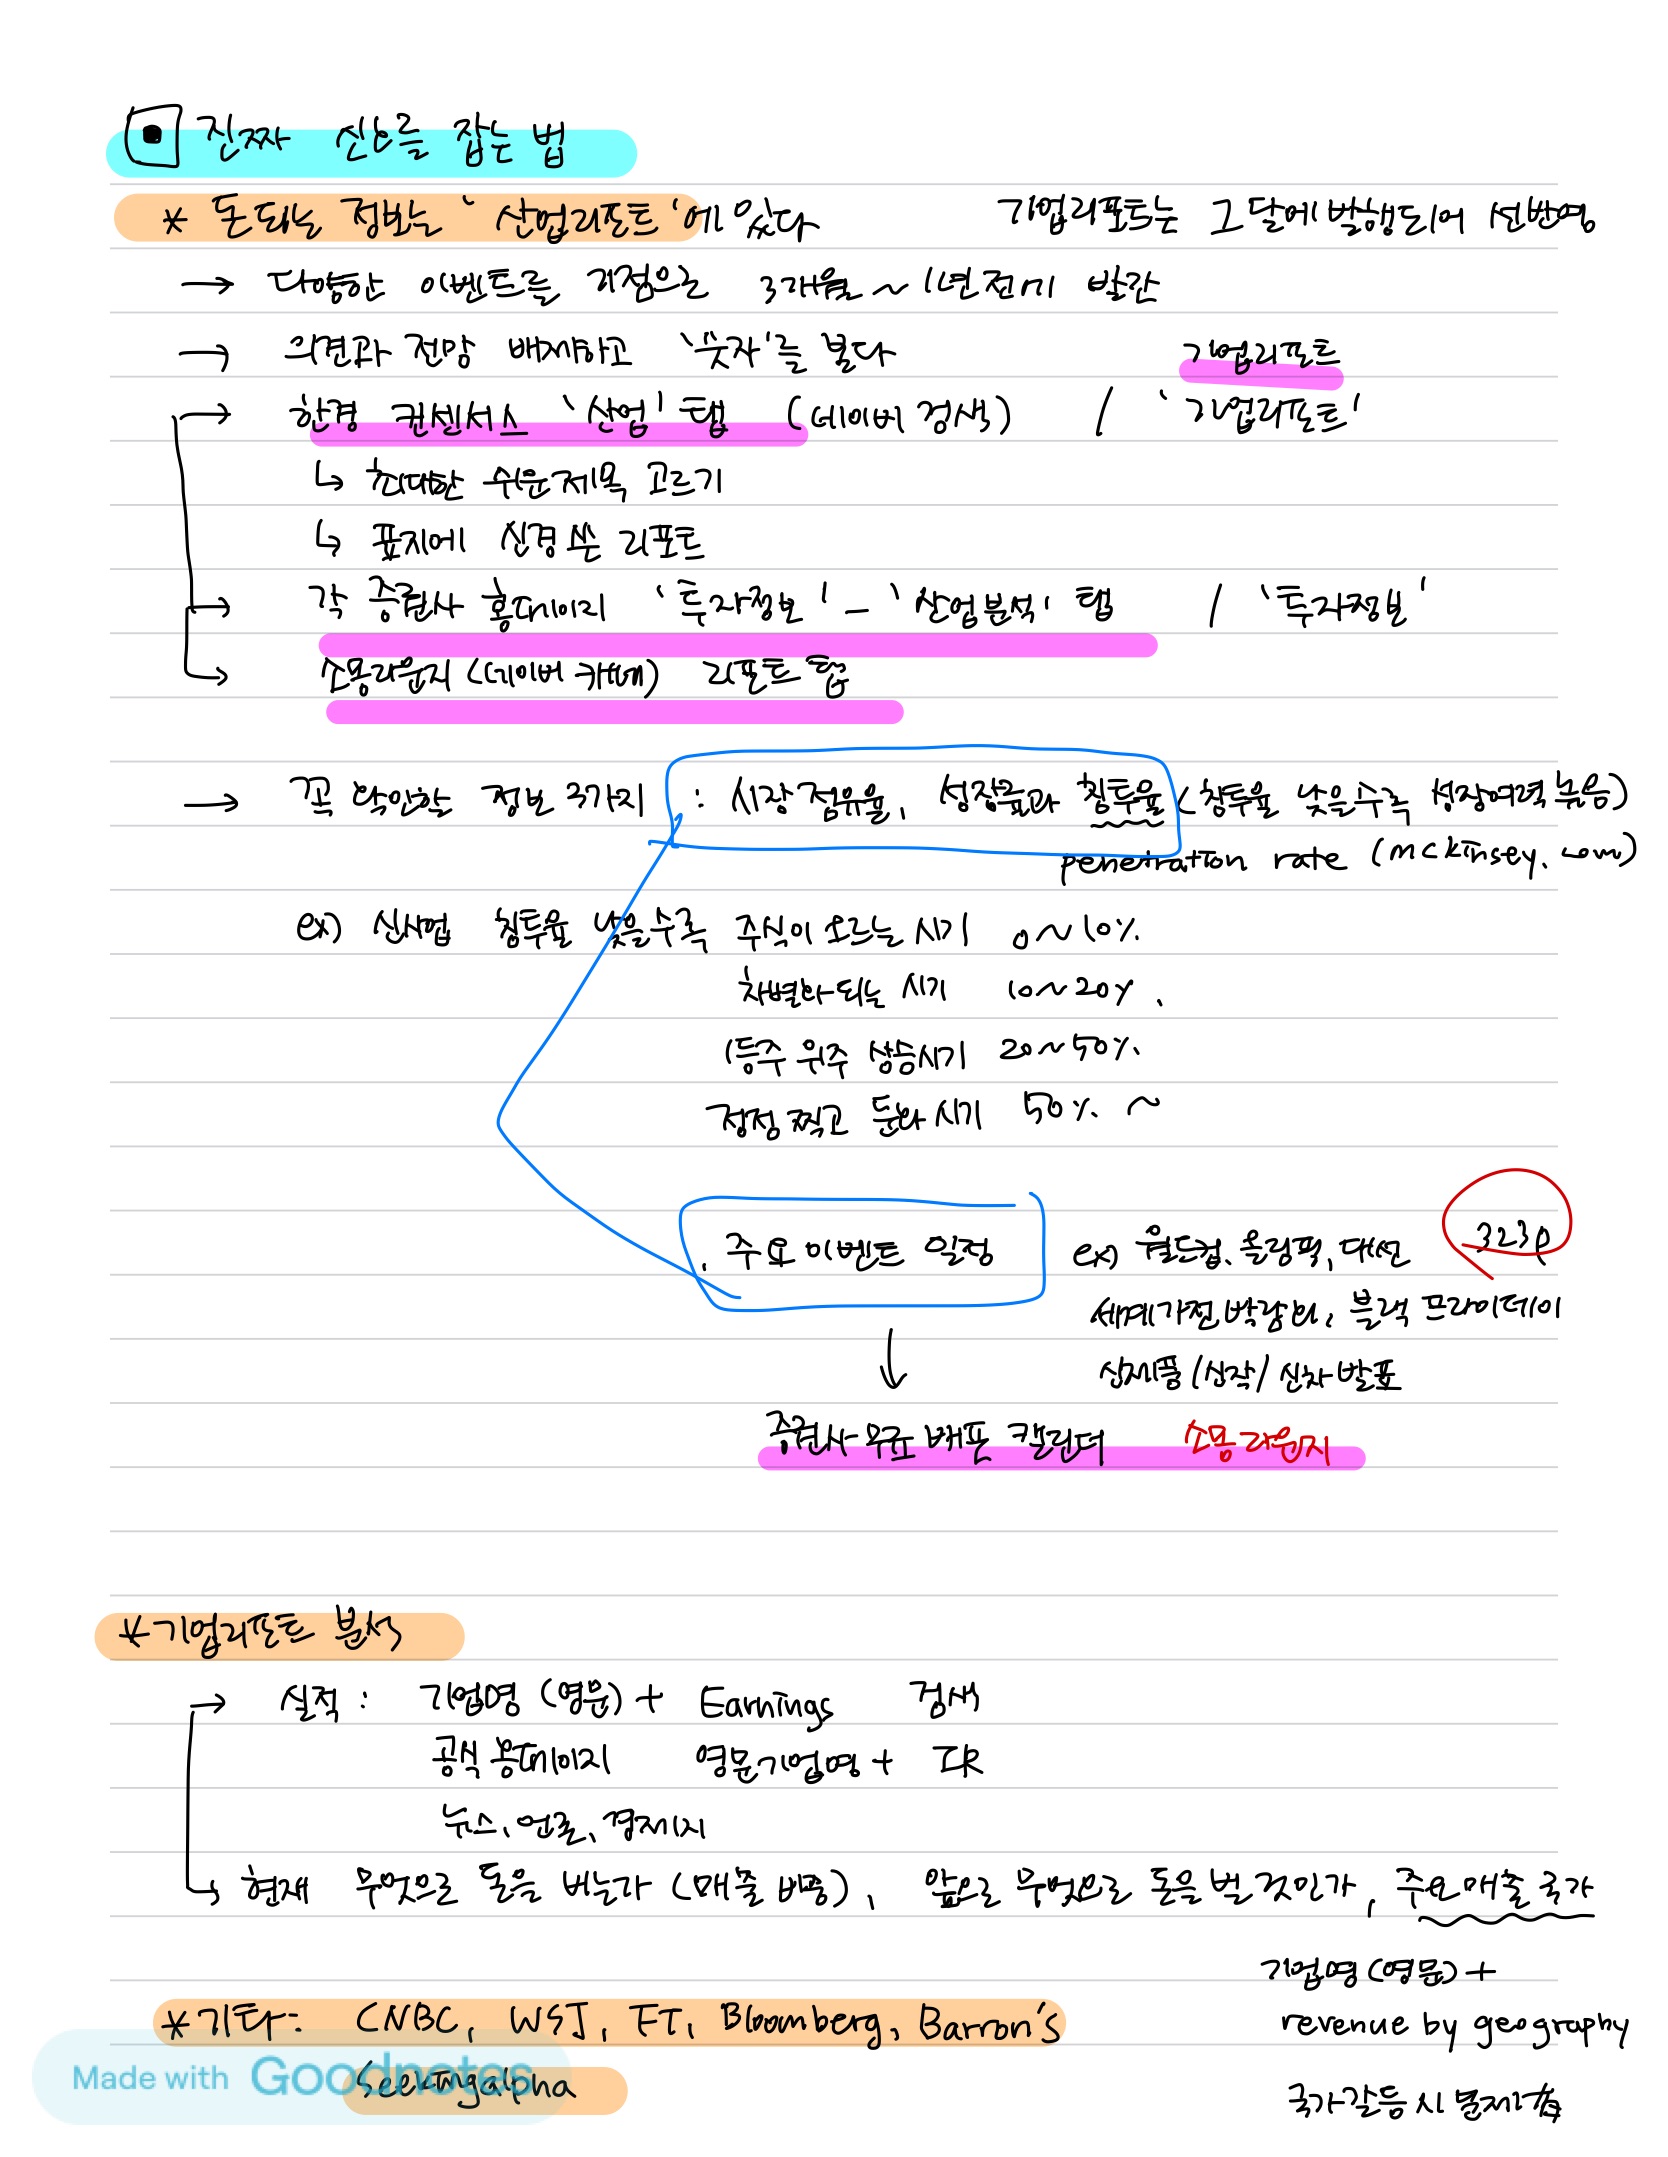 진짜 신호를 잡는 법
* 돈 되는 정보는 '산업리포트'에 있다 기업리포트는 그 달에 발행되어 선반영
→ 다양한 이벤트를 기점으로 3개월 ~ 1년 전에 발간
→ 의견과 전망 배제하고 '숫자'를 본다 기업리포트
→ 한경 컨센서스 '산업' 탭 (네이버 검색) / '기업리포트'
↳ 최대한 쉬운제목 고르기
↳ 표지에 신경 쓴 리포트
→ 각 증권사 홈페이지 '투자정보' - '산업분석' 탭 / '투자정보'
→ 소몽라운지 (네이버 카페) 리포트 탭
→ 꼭 확인할 정보 3가지 : 시장점유율, 성장률과 침투율 (침투율 낮을수록 성장여력 높음)
penetration rate (mckinsey.com)
ex) 신사업 침투율 낮을수록 주식이 오르는 시기 0~10%
차별화 되는 시기 10~20%.
1등주 위주 상승시기 20~50%.
정점 찍고 둔화 시기 50% ~
, 주요 이벤트 일정 ex) 월드컵, 올림픽, 대선 323p
세계가전박람회, 블랙 프라이데이
신제품/신작/신차 발표
↓
증권사 무료 배포 캘린더 소몽라운지
*기업리포트 분석
→ 실적 : 기업명 (영문) + Earnings 검색
공식 홈페이지 영문기업명 + IR
뉴스, 언론, 경제지
↳ 현재 무엇으로 돈을 버는가 (매출 비중), 앞으로 무엇으로 돈을 벌 것인가, 주요매출 국가
기업명 (영문) +
*기타 : CNBC, WSJ, FT, Bloomberg, Barron's revenue by geography
Seekingalpha 국가갈등 시 문제
Made with Goodnotes